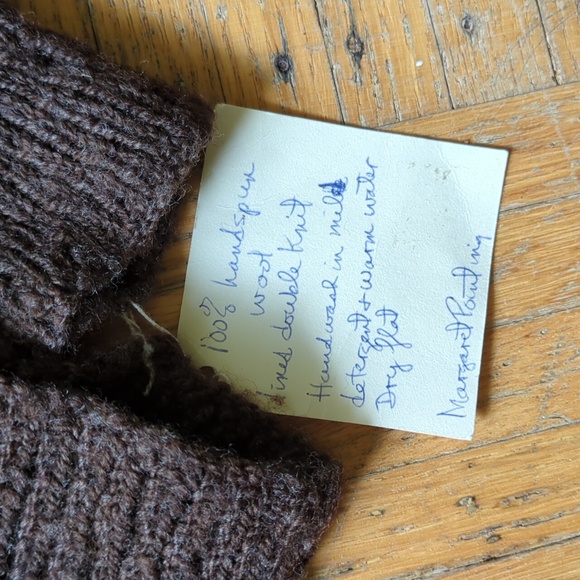 100% handspun
wool
lined double knit
Handwash in mild
detergent & warm water
Dry flat
Margaret Pauting